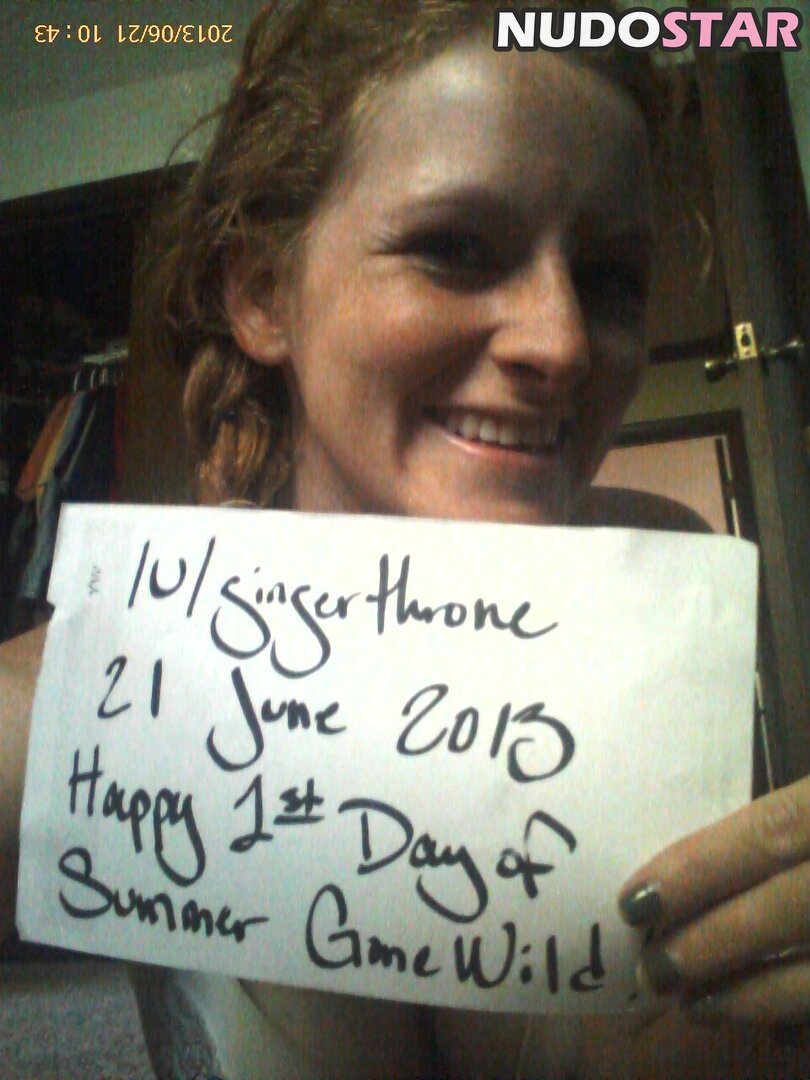 2013/06/21 10:43
NUDOSTAR
/u/gingerthrone
21 June 2013
Happy 1st Day of
Summer GoneWild!